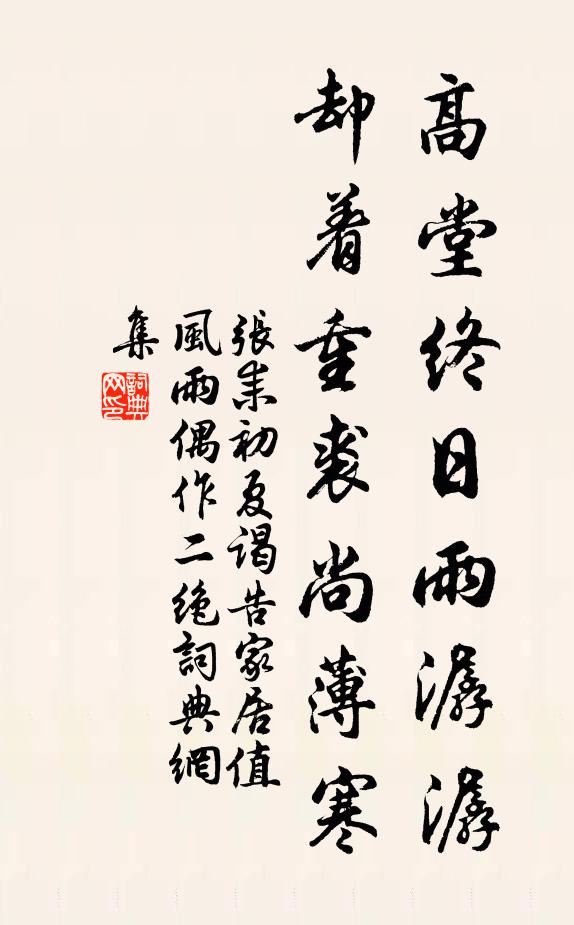 高堂終日雨潺潺
却着重裘尚薄寒
張耒初夏謁告家居值
風雨偶作二絶詞典網
集
詞典
网印